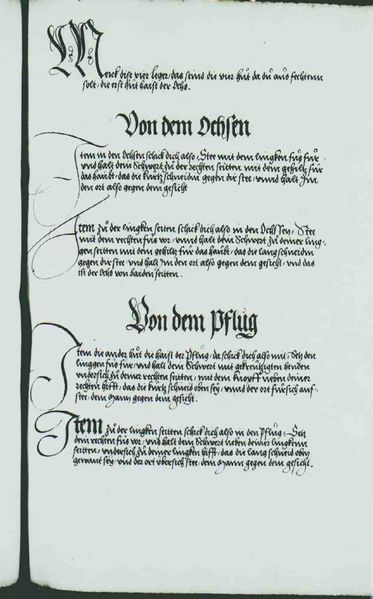 Merck dise vier leger, das seind die vier hut da du aus fechtenn
solt, die erst hut haist der Ochs.
Von dem Ochsen
Item in den Ochsen schick dich also, Stee mit dem lingken fuß fur,
vnd halt dein Schwert zu der rechten seitten mit dem gehultz fur
das haubt, das die kurtz schneid gegen dir stee, vnnd halt Im
den ort also gegen dem gesicht
Item zu der lingken seiten schick dich also in den Ochssen, Stee
mit dem rechten fuß vor, vnnd halt dein Schwert zu deiner ling-
gen seitten mit dem gehiltz fur das haubt, das die lang schneid
gegen dir stee vnd halt Im den ort also gegen dem gesicht, vnd das
ist der Ochs von baiden seitten.
Von dem Pflug
Item die ander hut die haist der Pflug, da schick dich also mit, Setz den
linggen fuß fur, vnd halt dein Schwert mit gekreutzigten henden
vndersich zu deiner rechten seitten, mit dem knopff neben deiner
rechten hufft, das die kurtz schneid oben sey, vnnd der ort fursich auf-
stee, dem Mann gegen dem gesicht.
Item zu der lingken seitten schick dich also in den Pflug, Setz
den rechten fuß vor, vnd halt dein Schwert neben deiner lingkenn
seitten, vndersich zu deiner lingken hufft, das die lang schneid oben
gewant sey, vnd der ort vbersich stee, dem Mann gegen dem gesicht.